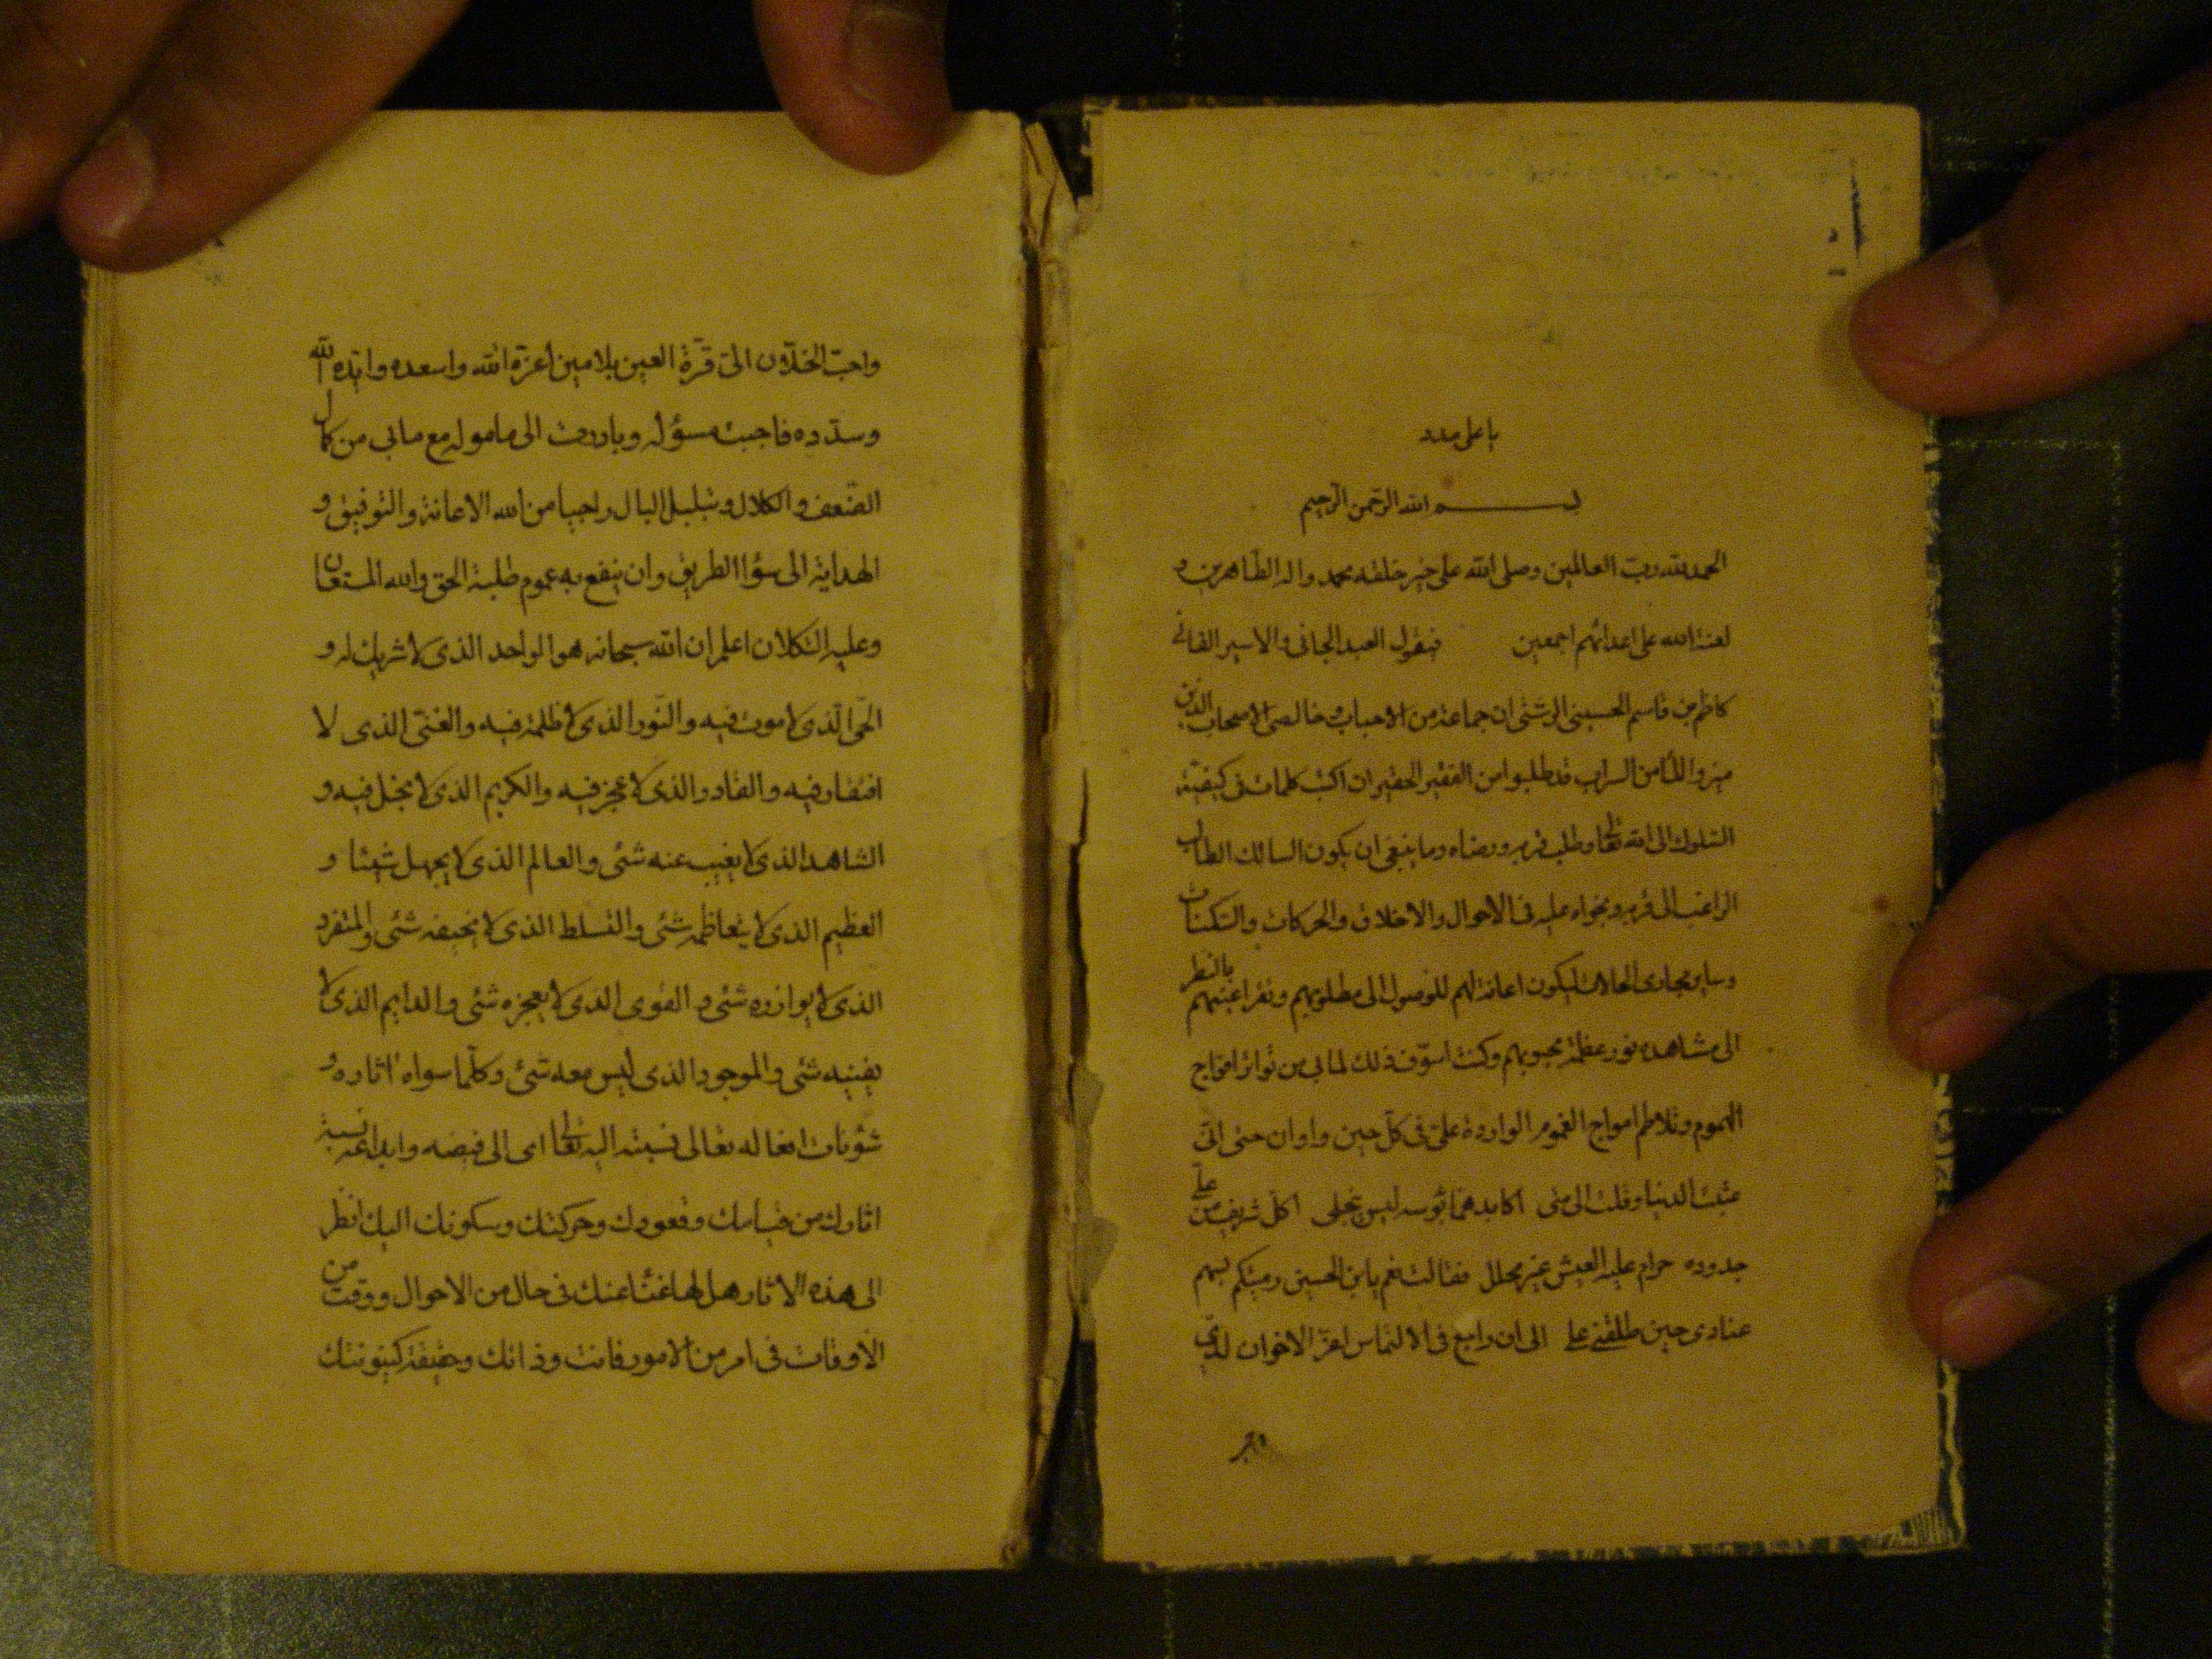 يا علي مدد
بسم الله الرحمن الرحيم
الحمد لله رب العالمين وصلى الله على خير خلقه محمد واله الطاهرين و
لعنة الله على اعدائهم اجمعين فيقول العبد الجاني والاسير الفاني
كاظم بن قاسم الحسيني الرشتي ان جماعة من الاحباب وخالصي الاصحاب الذين
ميزوا الماء من السراب قد طلبوا من الفقير الحقير ان اكتب كلمات في كيفية
السلوك الى الله تعالى وطلب قربه ورضاه وما ينبغي ان يكون السالك الطالب
الراغب الى قربه ونجواه عليه في الاحوال والاخلاق والحركات والسكنات
وساير مجاري الحالات ليكون اعانة لهم للوصول الى مطلوبهم بالنظر
الى مشاهدة نور عظمة محبوبهم وكنت اسوف ذلك لما بي من تواتر افواج
الهموم وتلاطم امواج الغموم الواردة علي في كل حين واوان حتى اني
عتبت الدنيا وقلت الى متى اكابد هما بؤسه ليس ينجلي اكل شريف من علي
جدوده حرام عليه العيش غير محلل فقالت نعم يابن الحسين رميتكم بسهم
عنادي حين طلقني علي الى ان رابع في الالتماس اعز الاخوان لدي
واحب الخلان الي قرة العين بلا مين اعزه الله واسعده وايده الله
وسدده فاجبت مسؤله وبادرت الى ماموله مع ما بي من كمال
الضعف والكلال وتبلبل البال راجيا من الله الاعانة والتوفيق و
الهداية الى سواء الطريق وان ينفع به عموم طلبة الحق والله المستعان
وعليه التكلان اعلم ان الله سبحانه هو الواحد الذي لا شريك له و
الحي الذي لا موت فيه والنور الذي لا ظلمة فيه والغني الذي لا
افتقار فيه والقادر الذي لا عجز فيه والكريم الذي لا بخل فيه و
الشاهد الذي لا يغيب عنه شئ والعالم الذي لا يجهل شيئا و
العظيم الذي لا يتعاظمه شئ والتسلط الذي لا يخيفه شئ والمتفرد
الذي لا يوازره شئ و القوي الذي لا يعجزه شئ والدايم الذي لا
يفنيه شئ والموجود الذي ليس معه شئ وكلما سواه اثاره و
شؤنات افعاله تعالى نسبته اليه تعالى اي الى فيضه وابداعه نسبة
اثارك من قيامك وقعودك وحركتك وسكونك اليك انظر
الى هذه الاثار هل لها غناء عنك في حال من الاحوال ووقت من
الاوقات في امر من الامور فانت وذاتك وحقيقة كينونتك